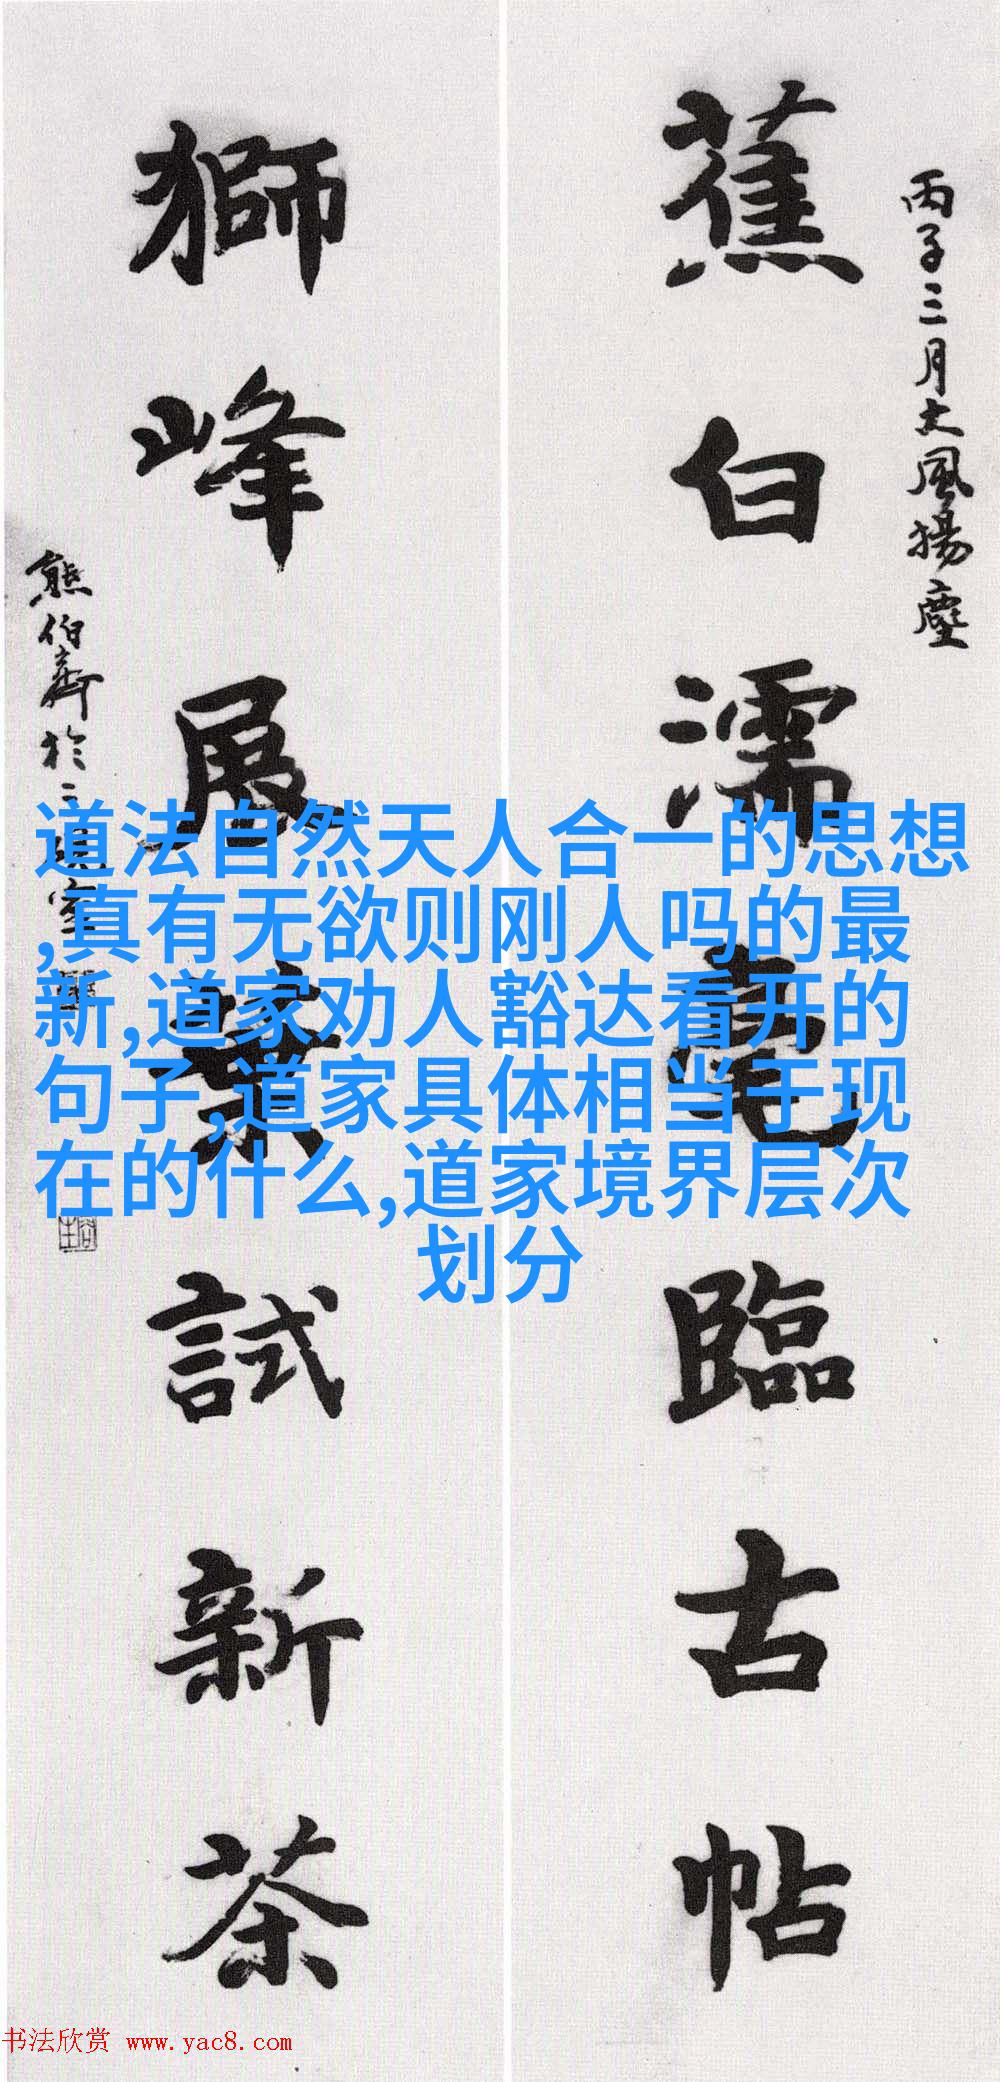 丙子三月大風揚塵
蕉白濡毫臨古帖
獅峰展葉試新茶
熊伯齊於室
道法自然天人合一的思想
,真有无欲则刚人吗的最
新,道家劝人豁达看开的
句子,道家具体相当于现
在的什么,道家境界层次
划分
书法欣赏 www.yac8.com